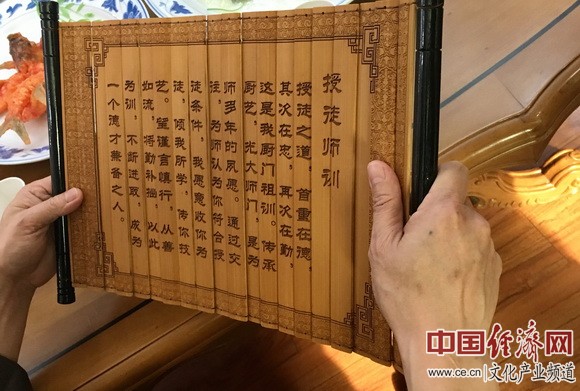 授徒师训
授徒之道，首重在德，
其次在忠，其次在勤，
这是我厨门祖训。传承
厨艺，光大师门，是为
师多年的夙愿。通过交
往，为师认为你符合授
徒条件，我愿意收你为
徒，倾我所学，传你技
艺。望谨言慎行，从善
如流，将勤补拙，以此
为训，不断进取，成为
一个德才兼备之人。
中国经济网
www.ce.cn|文化产业频道